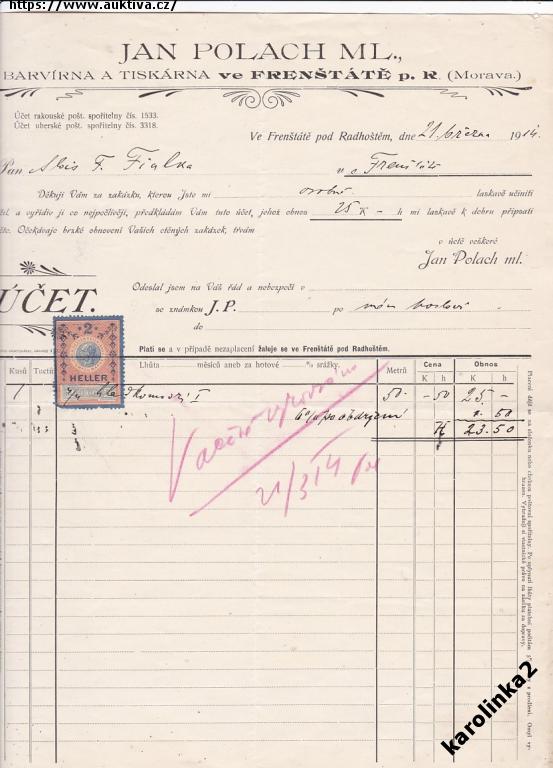 https://www.auktiva.cz/
JAN POLACH ML.,
BARVÍRNA A TISKÁRNA ve FRENŠTÁTĚ p. R. (Morava.)
Účet rakouské pošt. spořitelny čís. 1533.
Účet uherské pošt. spořitelny čís. 3318.
Ve Frenštátě pod Radhoštěm, dne 21 března 1914
Pan Alois F. Fialka v Frenštátě
Děkuji Vám za zakázku, kterou Jste mi osobně laskavě učiniti
a vyřídiv ji co nejpočlivěji, předkládám Vám tuto účet, jehož obnos 25 K — h mi laskavě k dobru připsati
Očekávaje brzké obnovení Vašich ctěných zakázek, trvám
v úctě veškeré
Jan Polach ml.
ÚČET.
Odeslal jsem na Váš řád a nebezpečí v
se známkou J. P. po
do
Platí se a v případě nezaplacení žaluje se ve Frenštátě pod Radhoštěm.
2
HELLER
Kusů Tuctů Lhůta měsíců aneb za hotové % srážky. Metrů Cena Obnos
K h K h
1 I 50 — 50 25 —
6% po obdržení 1 50
K 23.50
21/3 14
karolinka2